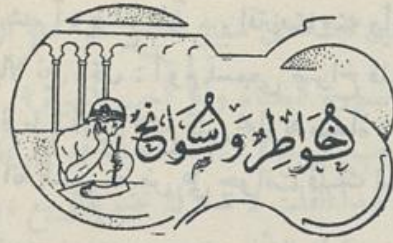 خَواطِر وَسَوانح